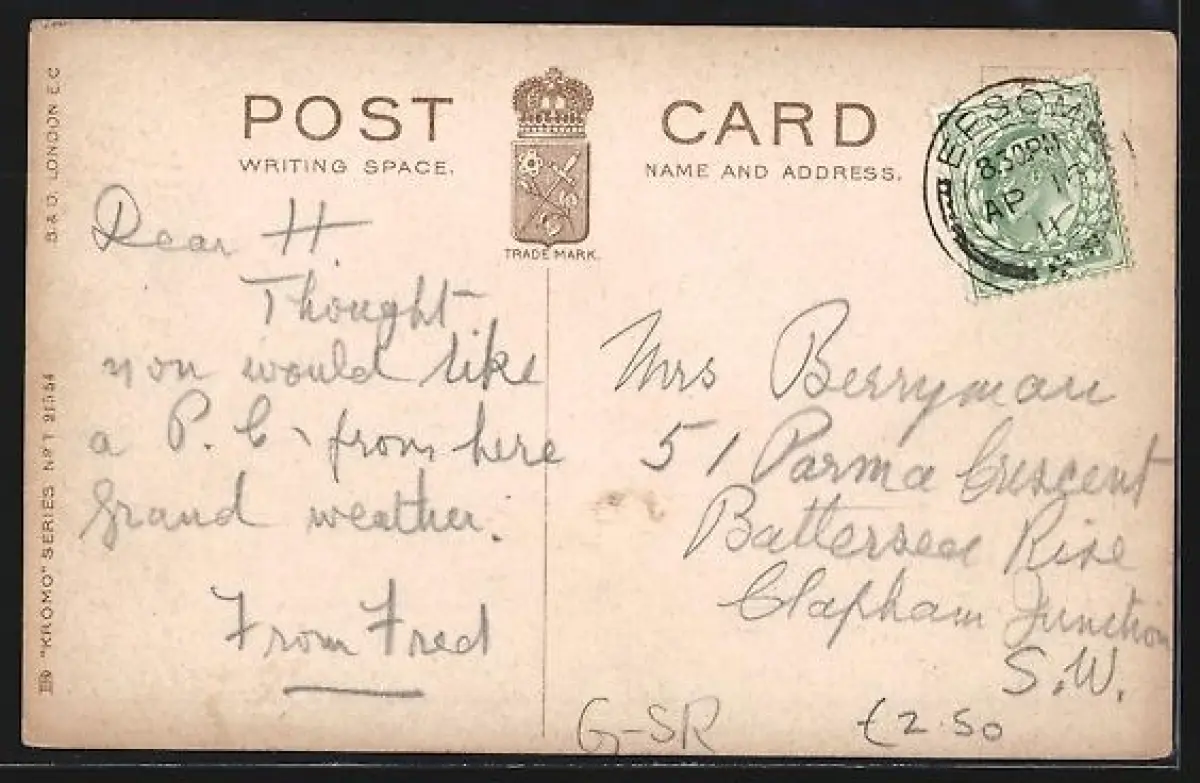 POST CARD
WRITING SPACE.
NAME AND ADDRESS.
TRADE MARK.
EPSOM
8.30PM
AP 10
11
Dear H.
Thought
you would like
a P.C. from here
Grand weather.
From Fred
Mrs Berryman
51 Parma Crescent
Battersea Rise
Clapham Junction
S.W.
G-SR
£2.50
B & D. LONDON E.C
"KROMO" SERIES No T